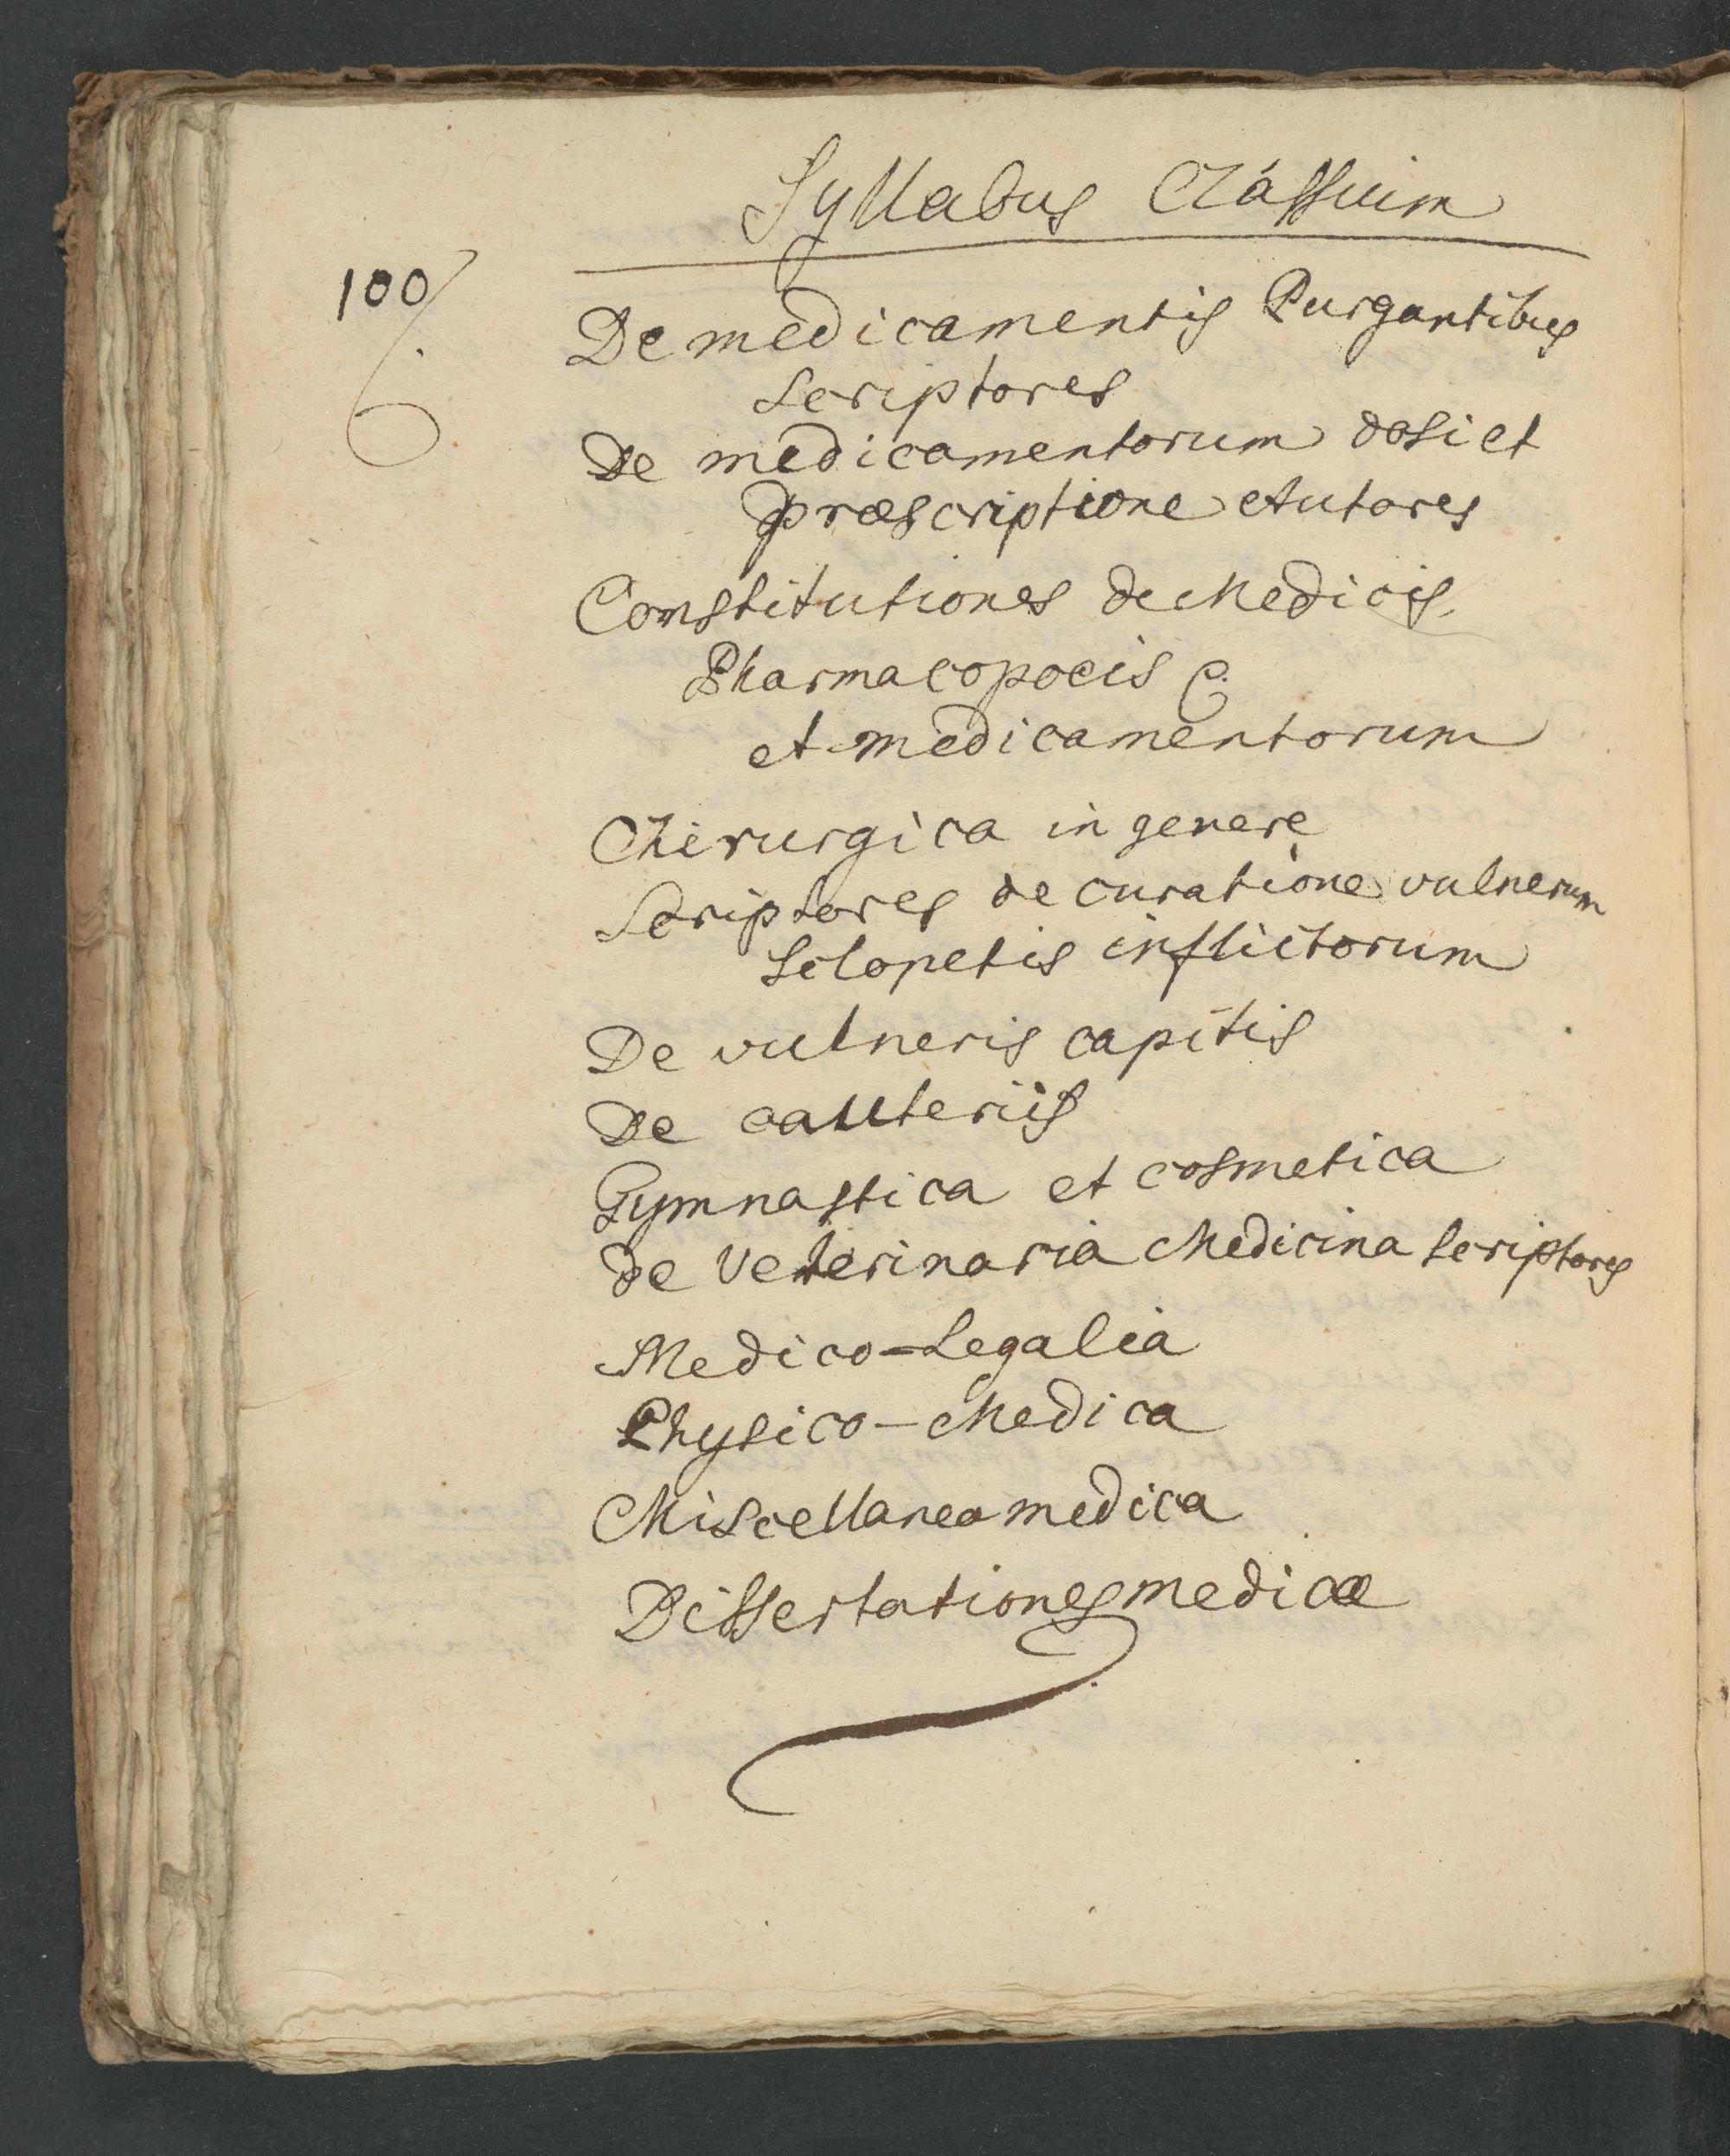 Syllabus Classium
100
De medicamentis Purgantibus
Scriptores
De medicamentorum dosi et
præscriptione Autores
Constitutiones de Medicis,
Pharmacopoeis
et medicamentorum
Chirurgica in genere
Scriptores de curatione vulnerum
Sclopetis inflictorum
De vulneris capitis
De cauteriis
Gymnastica et cosmetica
De Veterinaria Medicina Scriptores
Medico=Legalia
Physico-Medica
Miscellanea medica
Dissertationes medicæ